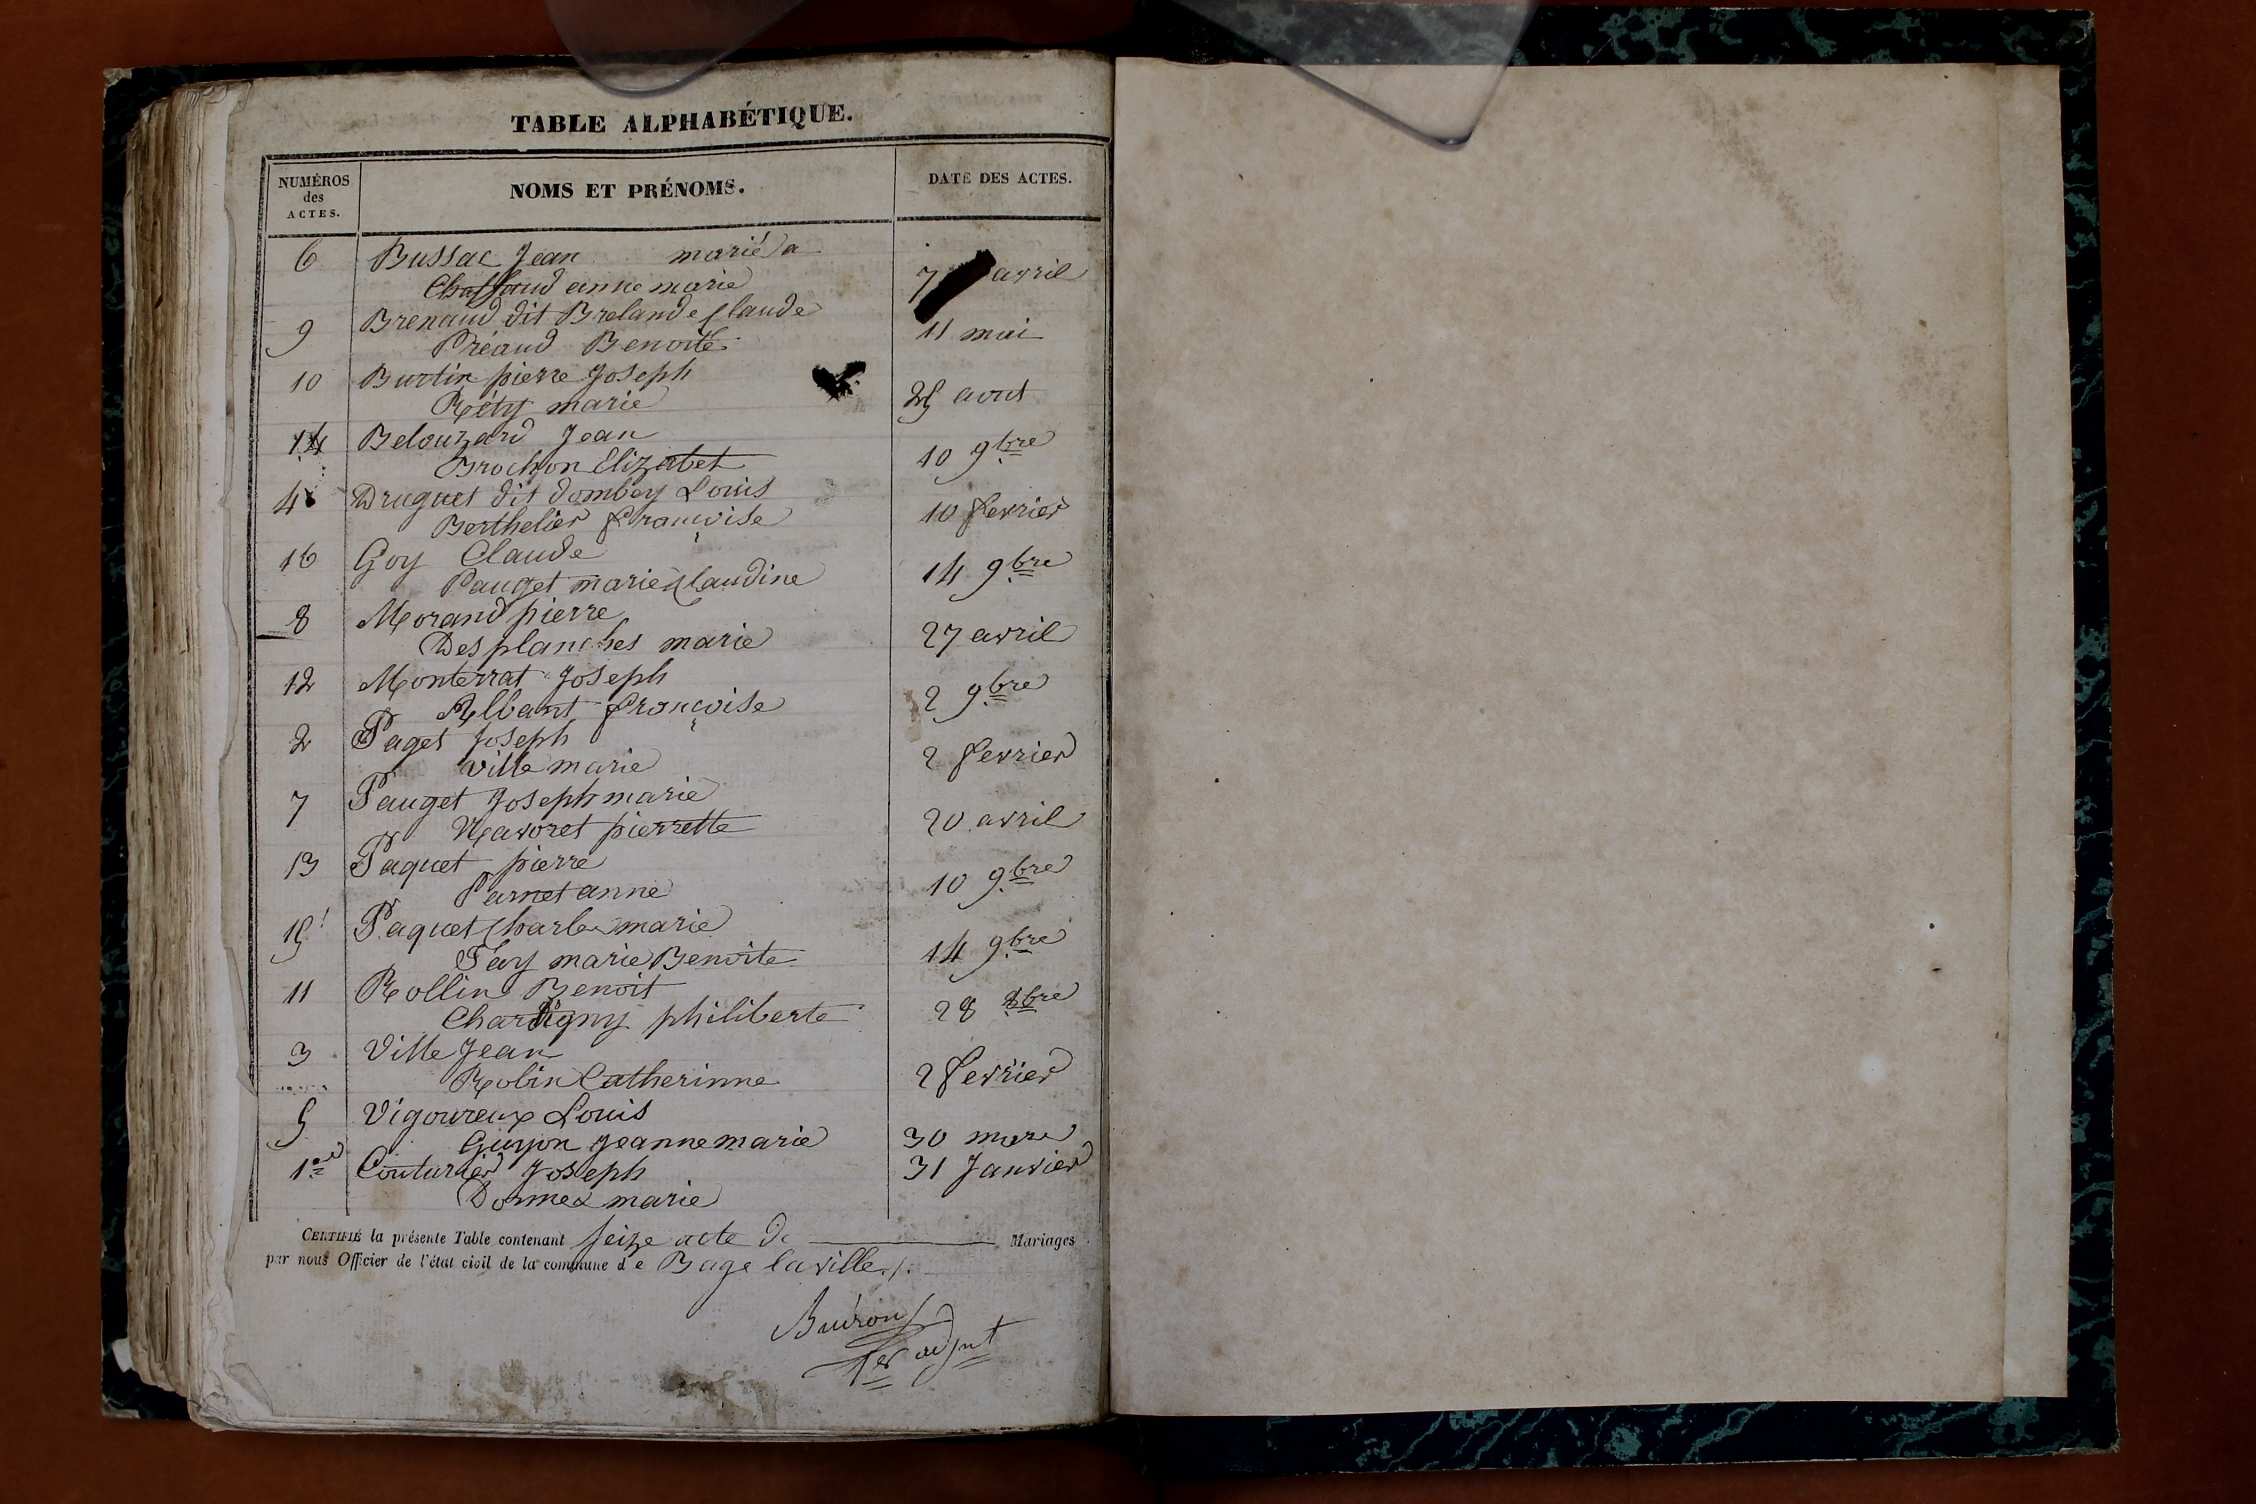 TABLE ALPHABÉTIQUE.
NUMÉROS des ACTES.
NOMS ET PRÉNOMS.
DATE DES ACTES.
6 Bussac Jean marié a
Chaffaud anne marie 7 avril
9 Brenaud dit Brelande Claude
Préaud Benoite 11 mai
10 Burtin pierre Joseph
Réty marie 25 aout
14 Belouzard Jean
Brochon Elizabet 10 9bre
4 Druguet dit dombey Louis
Berthelier Françoise 10 Fevrier
16 Goy Claude
Pauget marie Claudine 14 9bre
8 Morand pierre
Desplanches marie 27 avril
12 Monterrat Joseph
Albant françoise 2 9bre
2 Paget Joseph
Ville marie 2 Fevrier
7 Pauget Joseph marie
Navoret pierrette 20 avril
13 Paquet pierre
Parnet anne 10 9bre
15 Paquet Charles marie
Fay marie Benoite 14 9bre
11 Rollin Benoit
Chardigny philiberte 28 8bre
3 Ville Jean
Robin Catherinne 2 Fevrier
5 Vigoureux Louis
Guyon Jeanne marie 30 mars
1er Couturier Joseph 31 Janvier
Donnex marie
CERTIFIÉ la présente Table contenant seize acte de Mariages
par nous Officier de l'état civil de la commune de Bage la ville ./.
Buiron
1er adjnt